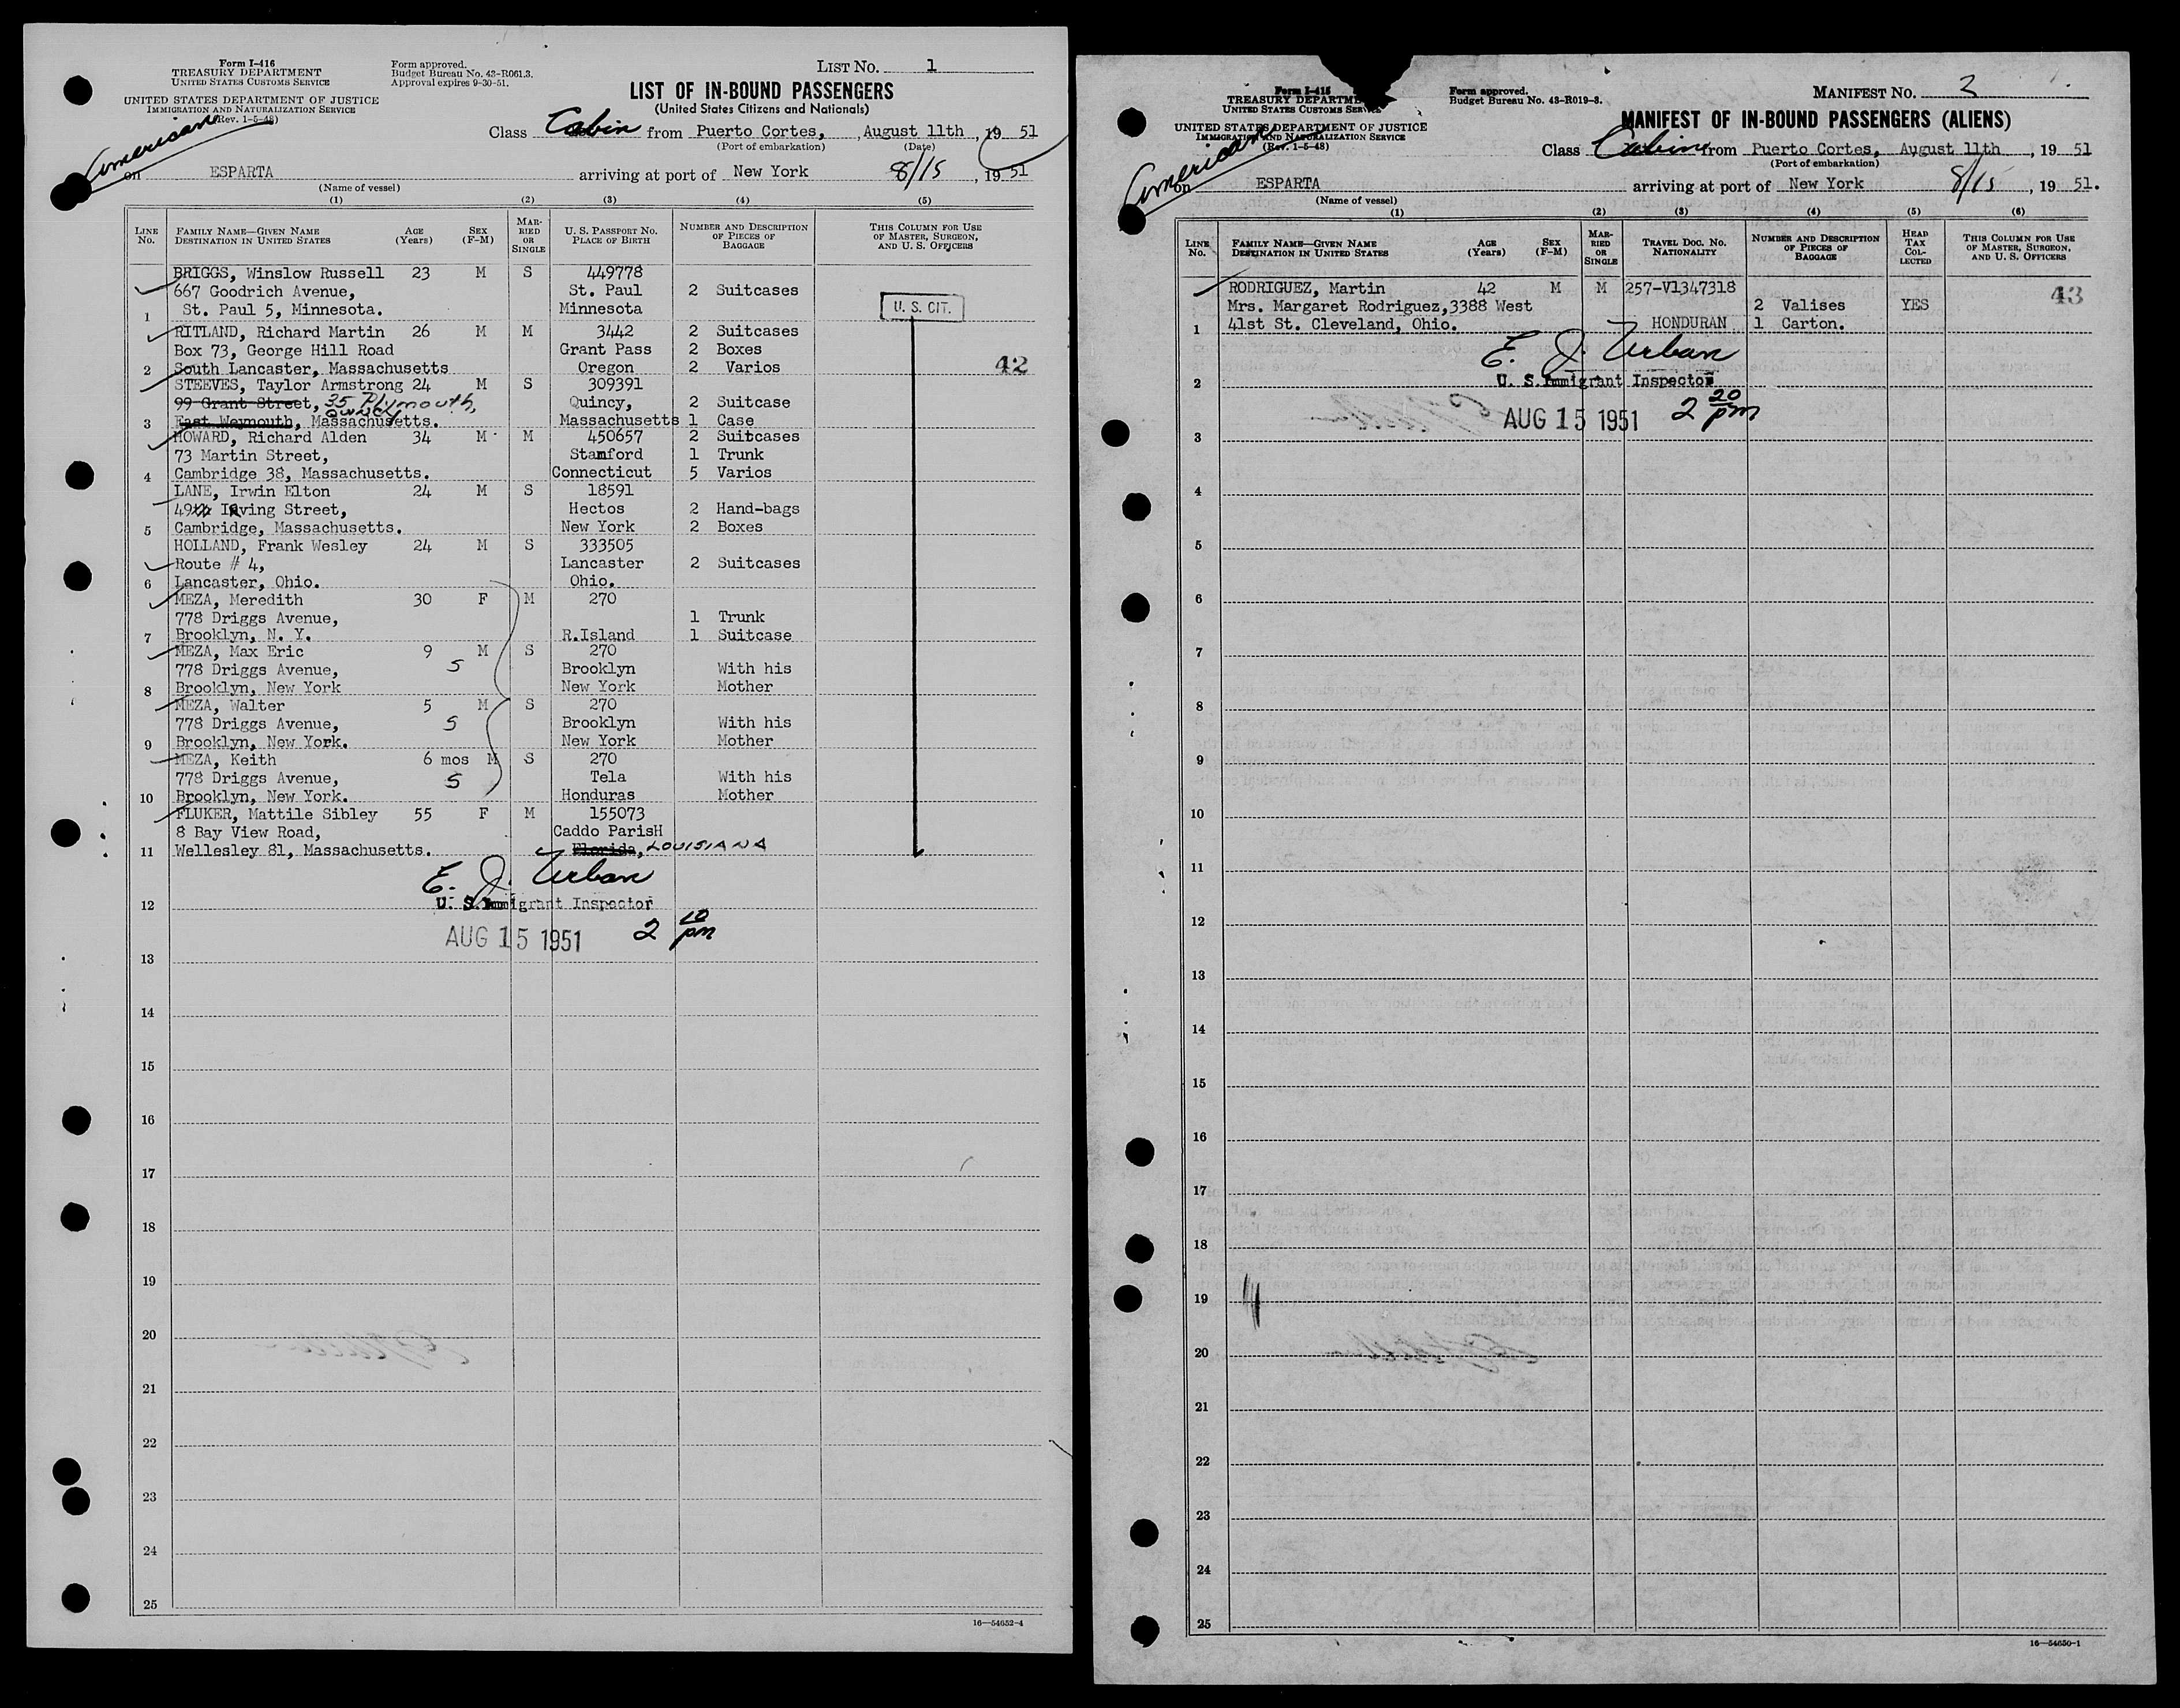 Form I-416
TREASURY DEPARTMENT
UNITED STATES CUSTOMS SERVICE
UNITED STATES DEPARTMENT OF JUSTICE
IMMIGRATION AND NATURALIZATION SERVICE
(Rev. 1-5-48)
Form approved.
Budget Bureau No. 43-R061.3.
Approval expires 9-30-51.
LIST NO. 1
LIST OF IN-BOUND PASSENGERS
(United States Citizens and Nationals)
American
Class Cabin from Puerto Cortes, August 11th, 1951
(Port of embarkation) (Date)
on ESPARTA arriving at port of New York 8/15, 1951
(Name of vessel)
(1) (2) (3) (4) (5)
LINE No. FAMILY NAME—GIVEN NAME DESTINATION IN UNITED STATES AGE (Years) SEX (F-M) MARRIED OR SINGLE U. S. PASSPORT NO. PLACE OF BIRTH NUMBER AND DESCRIPTION OF PIECES OF BAGGAGE THIS COLUMN FOR USE OF MASTER, SURGEON, AND U. S. OFFICERS
BRIGGS, Winslow Russell 23 M S 449778
667 Goodrich Avenue, St. Paul 2 Suitcases
1 St. Paul 5, Minnesota. Minnesota
U. S. CIT.
RITLAND, Richard Martin 26 M M 3442 2 Suitcases
Box 73, George Hill Road Grant Pass 2 Boxes
2 South Lancaster, Massachusetts Oregon 2 Varios
42
STEEVES, Taylor Armstrong 24 M S 309391
99 Grant Street, 35 Plymouth, Quincy, 2 Suitcase
Quincy
3 East Weymouth, Massachusetts. Massachusetts 1 Case
HOWARD, Richard Alden 34 M M 450657 2 Suitcases
73 Martin Street, Stamford 1 Trunk
4 Cambridge 38, Massachusetts. Connecticut 5 Varios
LANE, Irwin Elton 24 M S 18591
49 Irving Street, Hectos 2 Hand-bags
5 Cambridge, Massachusetts. New York 2 Boxes
HOLLAND, Frank Wesley 24 M S 333505
Route # 4, Lancaster 2 Suitcases
6 Lancaster, Ohio. Ohio.
MEZA, Meredith 30 F M 270
778 Driggs Avenue, 1 Trunk
7 Brooklyn, N. Y. R.Island 1 Suitcase
MEZA, Max Eric 9 M S 270
778 Driggs Avenue, S Brooklyn With his
8 Brooklyn, New York New York Mother
MEZA, Walter 5 M S 270
778 Driggs Avenue, S Brooklyn With his
9 Brooklyn, New York. New York Mother
MEZA, Keith 6 mos M S 270
778 Driggs Avenue, S Tela With his
10 Brooklyn, New York. Honduras Mother
FLUKER, Mattile Sibley 55 F M 155073
8 Bay View Road, Caddo ParisH
11 Wellesley 81, Massachusetts. Florida, LOUISIANA
E. J. Urban
12 U. S. Immigrant Inspector
AUG 15 1951 2 10 pm
13
14
15
16
17
18
19
20
21
22
23
24
25
16—54652-4
Form I-415
TREASURY DEPARTME
UNITED STATES CUSTOMS SERVICE
UNITED STATES DEPARTMENT OF JUSTICE
IMMIGRATION AND NATURALIZATION SERVICE
(Rev. 1-5-48)
Form approved.
Budget Bureau No. 43-R019-3.
MANIFEST NO. 2
MANIFEST OF IN-BOUND PASSENGERS (ALIENS)
American
Class Cabin from Puerto Cortes, August 11th, 1951
(Port of embarkation)
on ESPARTA arriving at port of New York 8/15, 1951.
(Name of vessel)
(1) (2) (3) (4) (5) (6)
LINE No. FAMILY NAME—GIVEN NAME DESTINATION IN UNITED STATES AGE (Years) SEX (F-M) MARRIED OR SINGLE TRAVEL DOC. NO. NATIONALITY NUMBER AND DESCRIPTION OF PIECES OF BAGGAGE HEAD TAX COLLECTED THIS COLUMN FOR USE OF MASTER, SURGEON, AND U. S. OFFICERS
RODRIGUEZ, Martin 42 M M 257-V1347318 43
Mrs. Margaret Rodriguez,3388 West 2 Valises YES
1 41st St. Cleveland, Ohio. HONDURAN 1 Carton.
E. J. Urban
2 U. S. Immigrant Inspector
AUG 15 1951 2 20 pm
3
4
5
6
7
8
9
10
11
12
13
14
15
16
17
18
19
20
21
22
23
24
25
16—54650-1